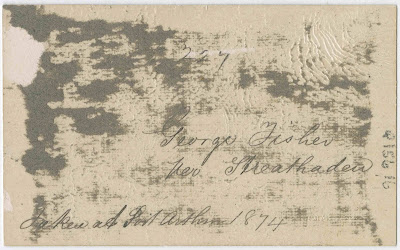 George Fisher
per Streathaden
Taken at Port Arthur 1874
Q156.16